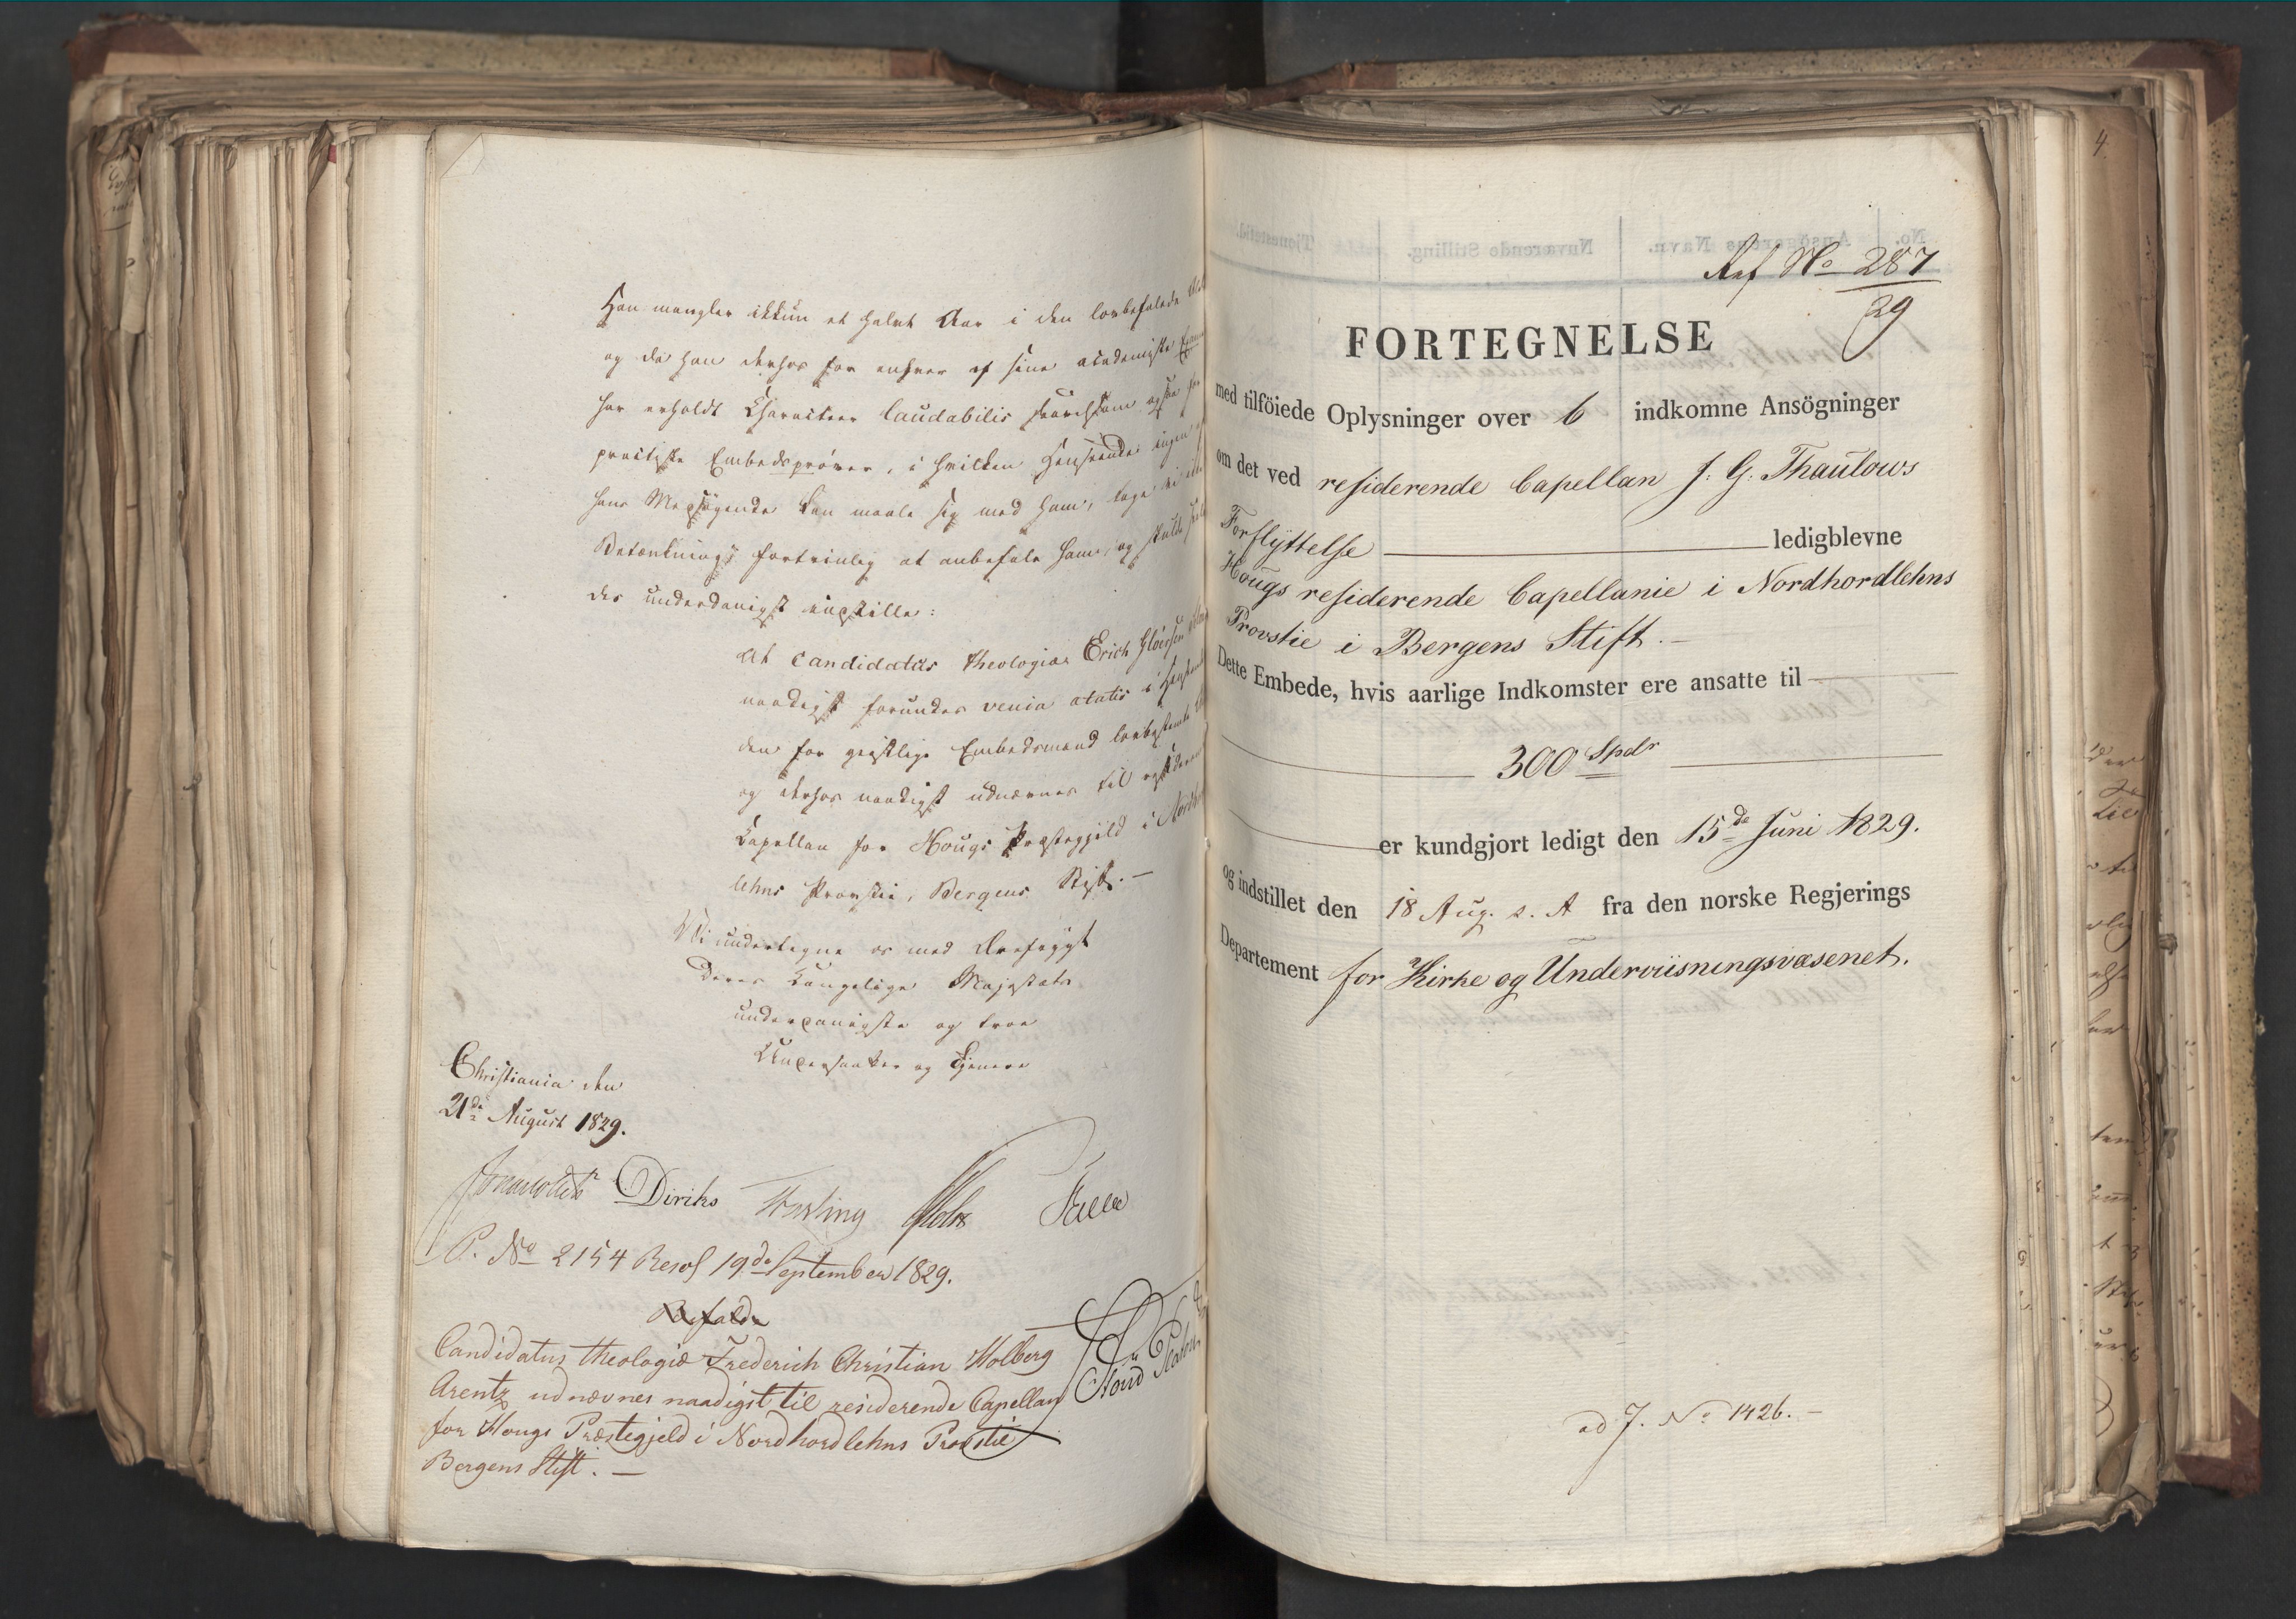 Han mangler ikkun et halvt Aar i den lovbefalede
og da han derhos for enhver af sine academiske
har erholdt Charakteer laudabilis saavelsom ogsaa for
practiske Embedsprøver, i hvilken Henseende ingen
hans Medsøgende kan maale sig med ham, tage vi
Betænkning fortrinlig at anbefale ham, og skulde
des underdanigst indstille:
At Candidatus theologiæ Erich
naadigst forundes venia ætatis i
den for geistlige Embedsmænd lovbestemte
og derhos naadigst udnævnes til
Capellan for Hougs Præstegjeld i
lehns Provstie, Bergens Stift. —
Vi undertegne os med Ærefrygt
Deres Kongelige Majestæts
underdanigste og troe
Undersaatter og Tjenere
Christiania den
21de August 1829.
Diriks
P. No 2154 Resol 19de September 1829.
Candidatus theologiæ Frederich Christian Holberg
Arentz udnævnes naadigst til residerende Capellan
for Hougs Præstegjeld i Nordhordlehns Provstie
Bergens Stift. —
No. Ansögerens Navn. Nuværende Stilling. Tjenestetid.
Ref No 287
29
FORTEGNELSE
med tilföiede Oplysninger over 6 indkomne Ansögninger
om det ved residerende Capellan J. G. Thaulows
Forflyttelse ledigblevne
Hougs residerende Capellanie i Nordhordlehns
Provstie i Bergens Stift. —
Dette Embede, hvis aarlige Indkomster ere ansatte til
300 Spdr
er kundgjort ledigt den 15de Juni 1829.
og indstillet den 18 Aug. s. A fra den norske Regjerings
Departement for Kirke og Underviisningsvæsenet.
ad J. No 1426. —
4.